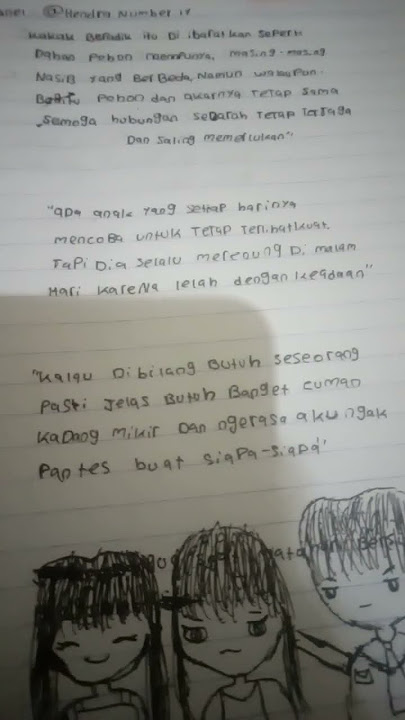 @Hendra Number 17
Kakak Beradik itu Di ibaratkan seperti
Dahan Pohon mempunya, masing-masing
Nasib yang BerBeda, Namun walauPun
Begitu Pohon dan akarnya TeTap Sama
Semoga hubungan sedarah TeTap Terjaga
Dan Saling memerlukan"
"ada anak yang setiap harinya
mencoBa untuk TeTap Terlihat kuat.
TaPi Dia selalu merenung Di malam
Hari KareNa lelah dengan keadaan"
"Kalau Dibilang Butuh seseorang
Pasti Jelas Butuh Banget cuman
Kadang mikir Dan ngerasa aku ngak
Pantes buat siaPa-siaPa"